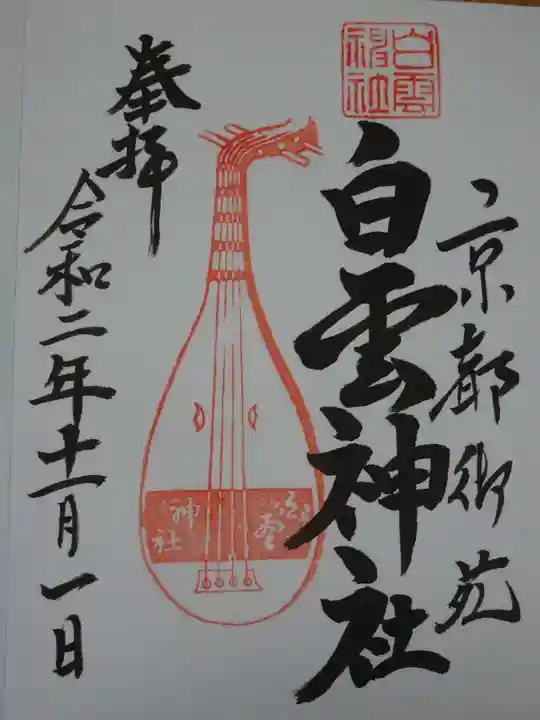 京都御苑
白雲神社
白雲
神社
奉拝
白雲
神社
令和二年十一月一日